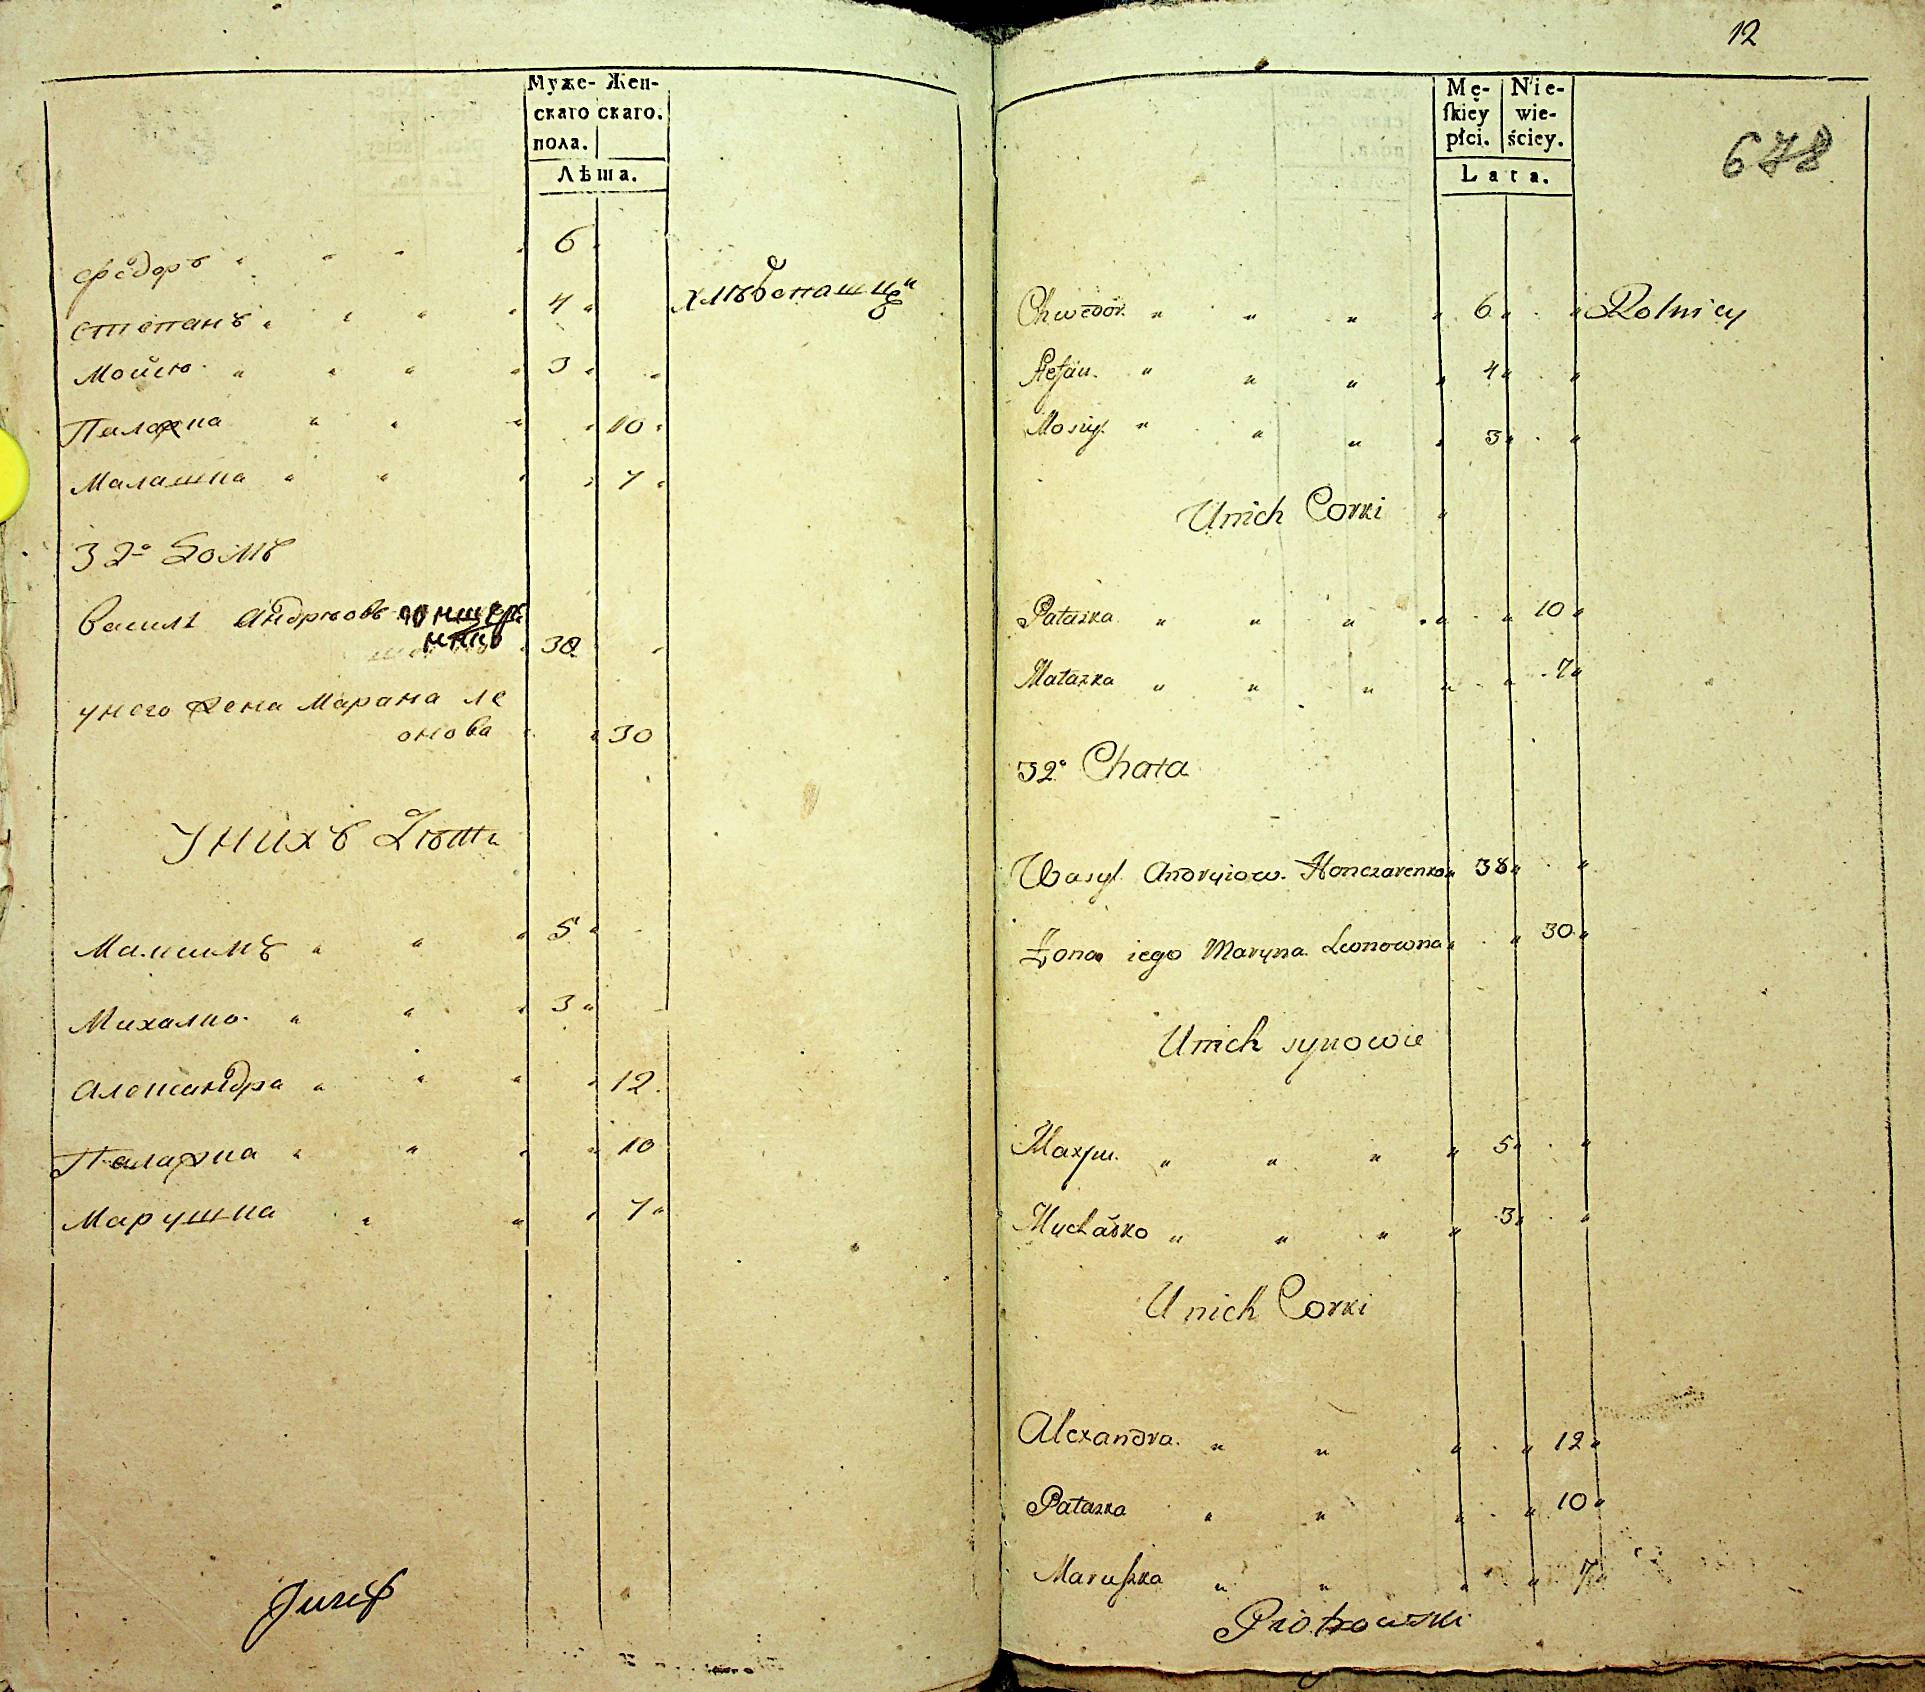 Муже- Жен-
скаго скаго.
пола.
Лѣта.
Федоръ " " " " 6 "
Степанъ " " " " 4 " хлѣбопашцы
Мойсю " " " " 3 " "
Палажка " " " " 10 "
Малашка " " " " 7 "
32о Домъ
Василь Андрѣовъ
38 "
у него жена Марана Ле
онова " " 30
У нихъ Дѣти
Максимъ " " " 5 "
Михалко " " " 3 "
Александра " " " " 12
Палажка " " " " 10
Марушка " " " 7 "
Juzef
12
678
Mę- Nie-
skiey wie-
płci. ściey.
Lata.
Chwedor. " " " " 6 " " Rolnicy
Stefan. " " " " 4 " "
Mosiy. " " " " 3 " "
U nich Corki "
Pałazka " " " " " 10 "
Małazka " " " " " 7 "
32o Chata
Wasyl Andryiow. Honczarenko " 38 " "
Żona iego Maryna Leonowna " " 30 "
U nich synowie
Maxym. " " " " 5 " "
Muchaśko " " " " 3 " "
U nich Corki
Alexandra. " " " " 12 "
Pałazka " " " " 10 "
Maruszka " " " " 7 "
Piotrowski